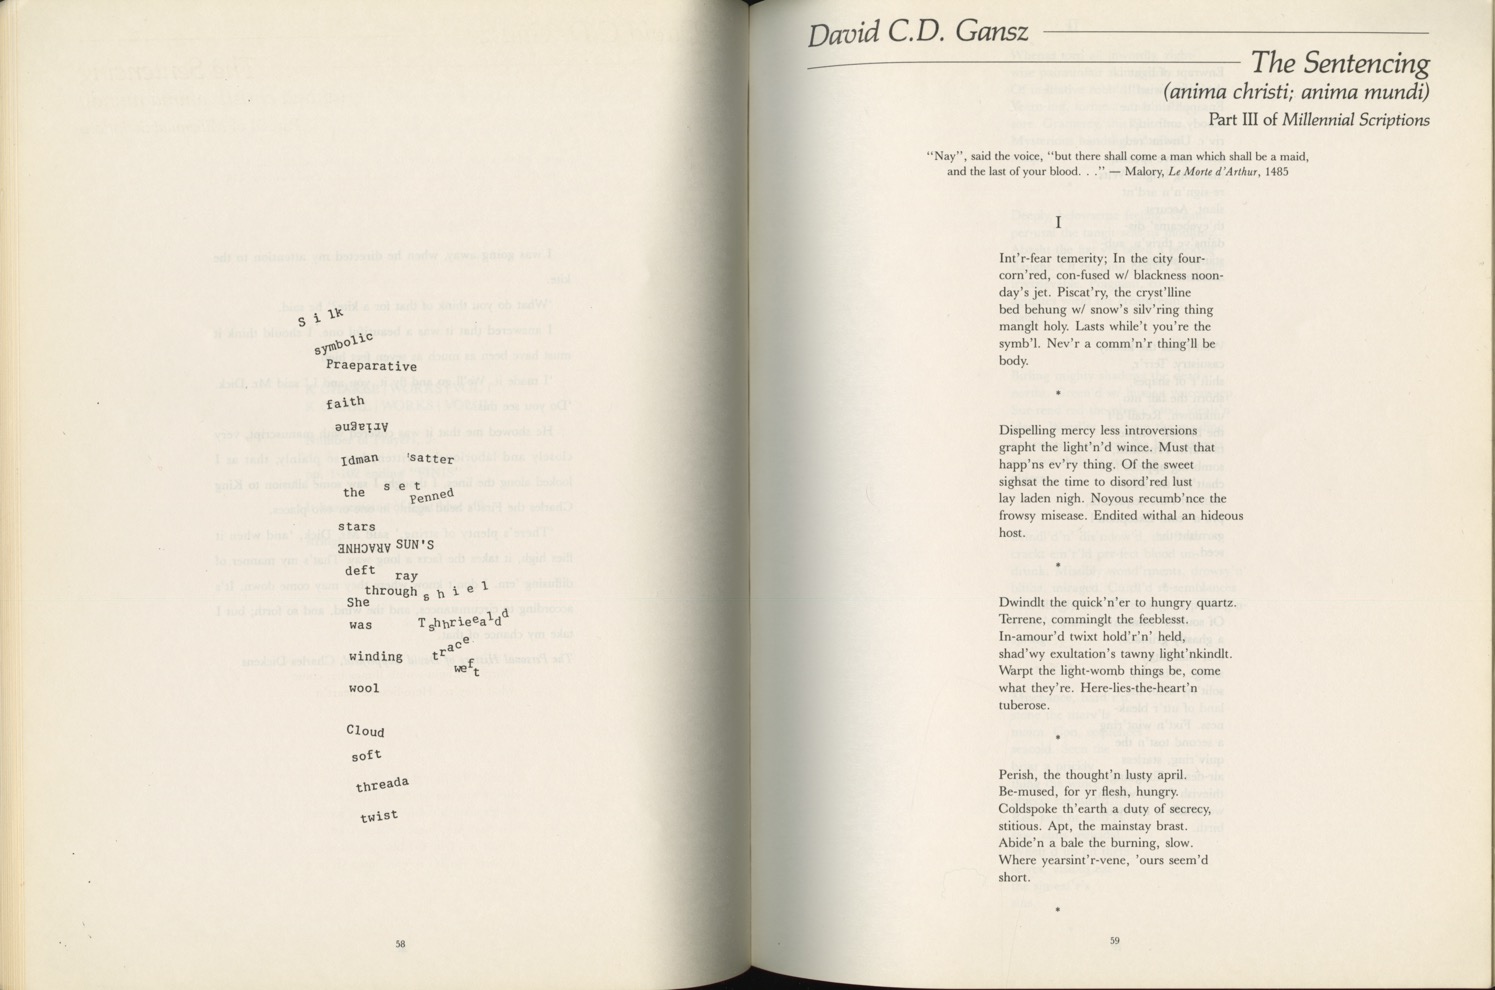 Silk
symbolic
Praeparative
faith
Ariagne
Idman 'satter
the set
Penned
stars
ARACHNE SUN'S
deft ray
through shiel
She
was
winding trace
weft
wool
Cloud
soft
threada
twist
58
David C.D. Gansz
The Sentencing
(anima christi; anima mundi)
Part III of Millennial Scriptions
"Nay", said the voice, "but there shall come a man which shall be a maid,
and the last of your blood. . ." — Malory, Le Morte d'Arthur, 1485
I
Int'r-fear temerity; In the city four-
corn'red, con-fused w/ blackness noon-
day's jet. Piscat'ry, the cryst'lline
bed behung w/ snow's silv'ring thing
manglt holy. Lasts while't you're the
symb'l. Nev'r a comm'n'r thing'll be
body.
*
Dispelling mercy less introversions
grapht the light'n'd wince. Must that
happ'ns ev'ry thing. Of the sweet
sighsat the time to disord'red lust
lay laden nigh. Noyous recumb'nce the
frowsy misease. Endited withal an hideous
host.
*
Dwindlt the quick'n'er to hungry quartz.
Terrene, comminglt the feeblesst.
In-amour'd twixt hold'r'n' held,
shad'wy exultation's tawny light'nkindlt.
Warpt the light-womb things be, come
what they're. Here-lies-the-heart'n
tuberose.
*
Perish, the thought'n lusty april.
Be-mused, for yr flesh, hungry.
Coldspoke th'earth a duty of secrecy,
stitious. Apt, the mainstay brast.
Abide'n a bale the burning, slow.
Where yearsint'r-vene, 'ours seem'd
short.
*
59